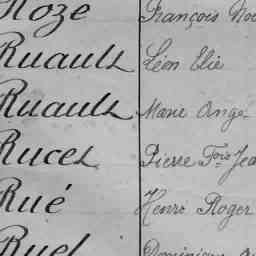 Roze François
Ruault Léon Elie
Ruault Marie Ange
Rucet Pierre Fois Jea
Rué Henri Roger
Ruel Dominique